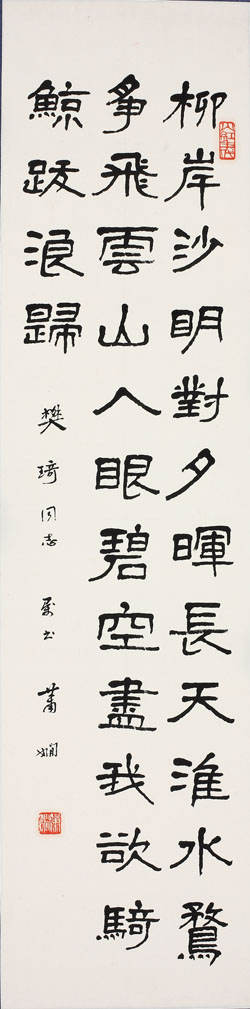 柳岸沙明對夕暉長天淮水鶩
爭飛雲山入眼碧空盡我欲騎
鯨跋浪歸
樊琦同志 屬書 蕭嫻